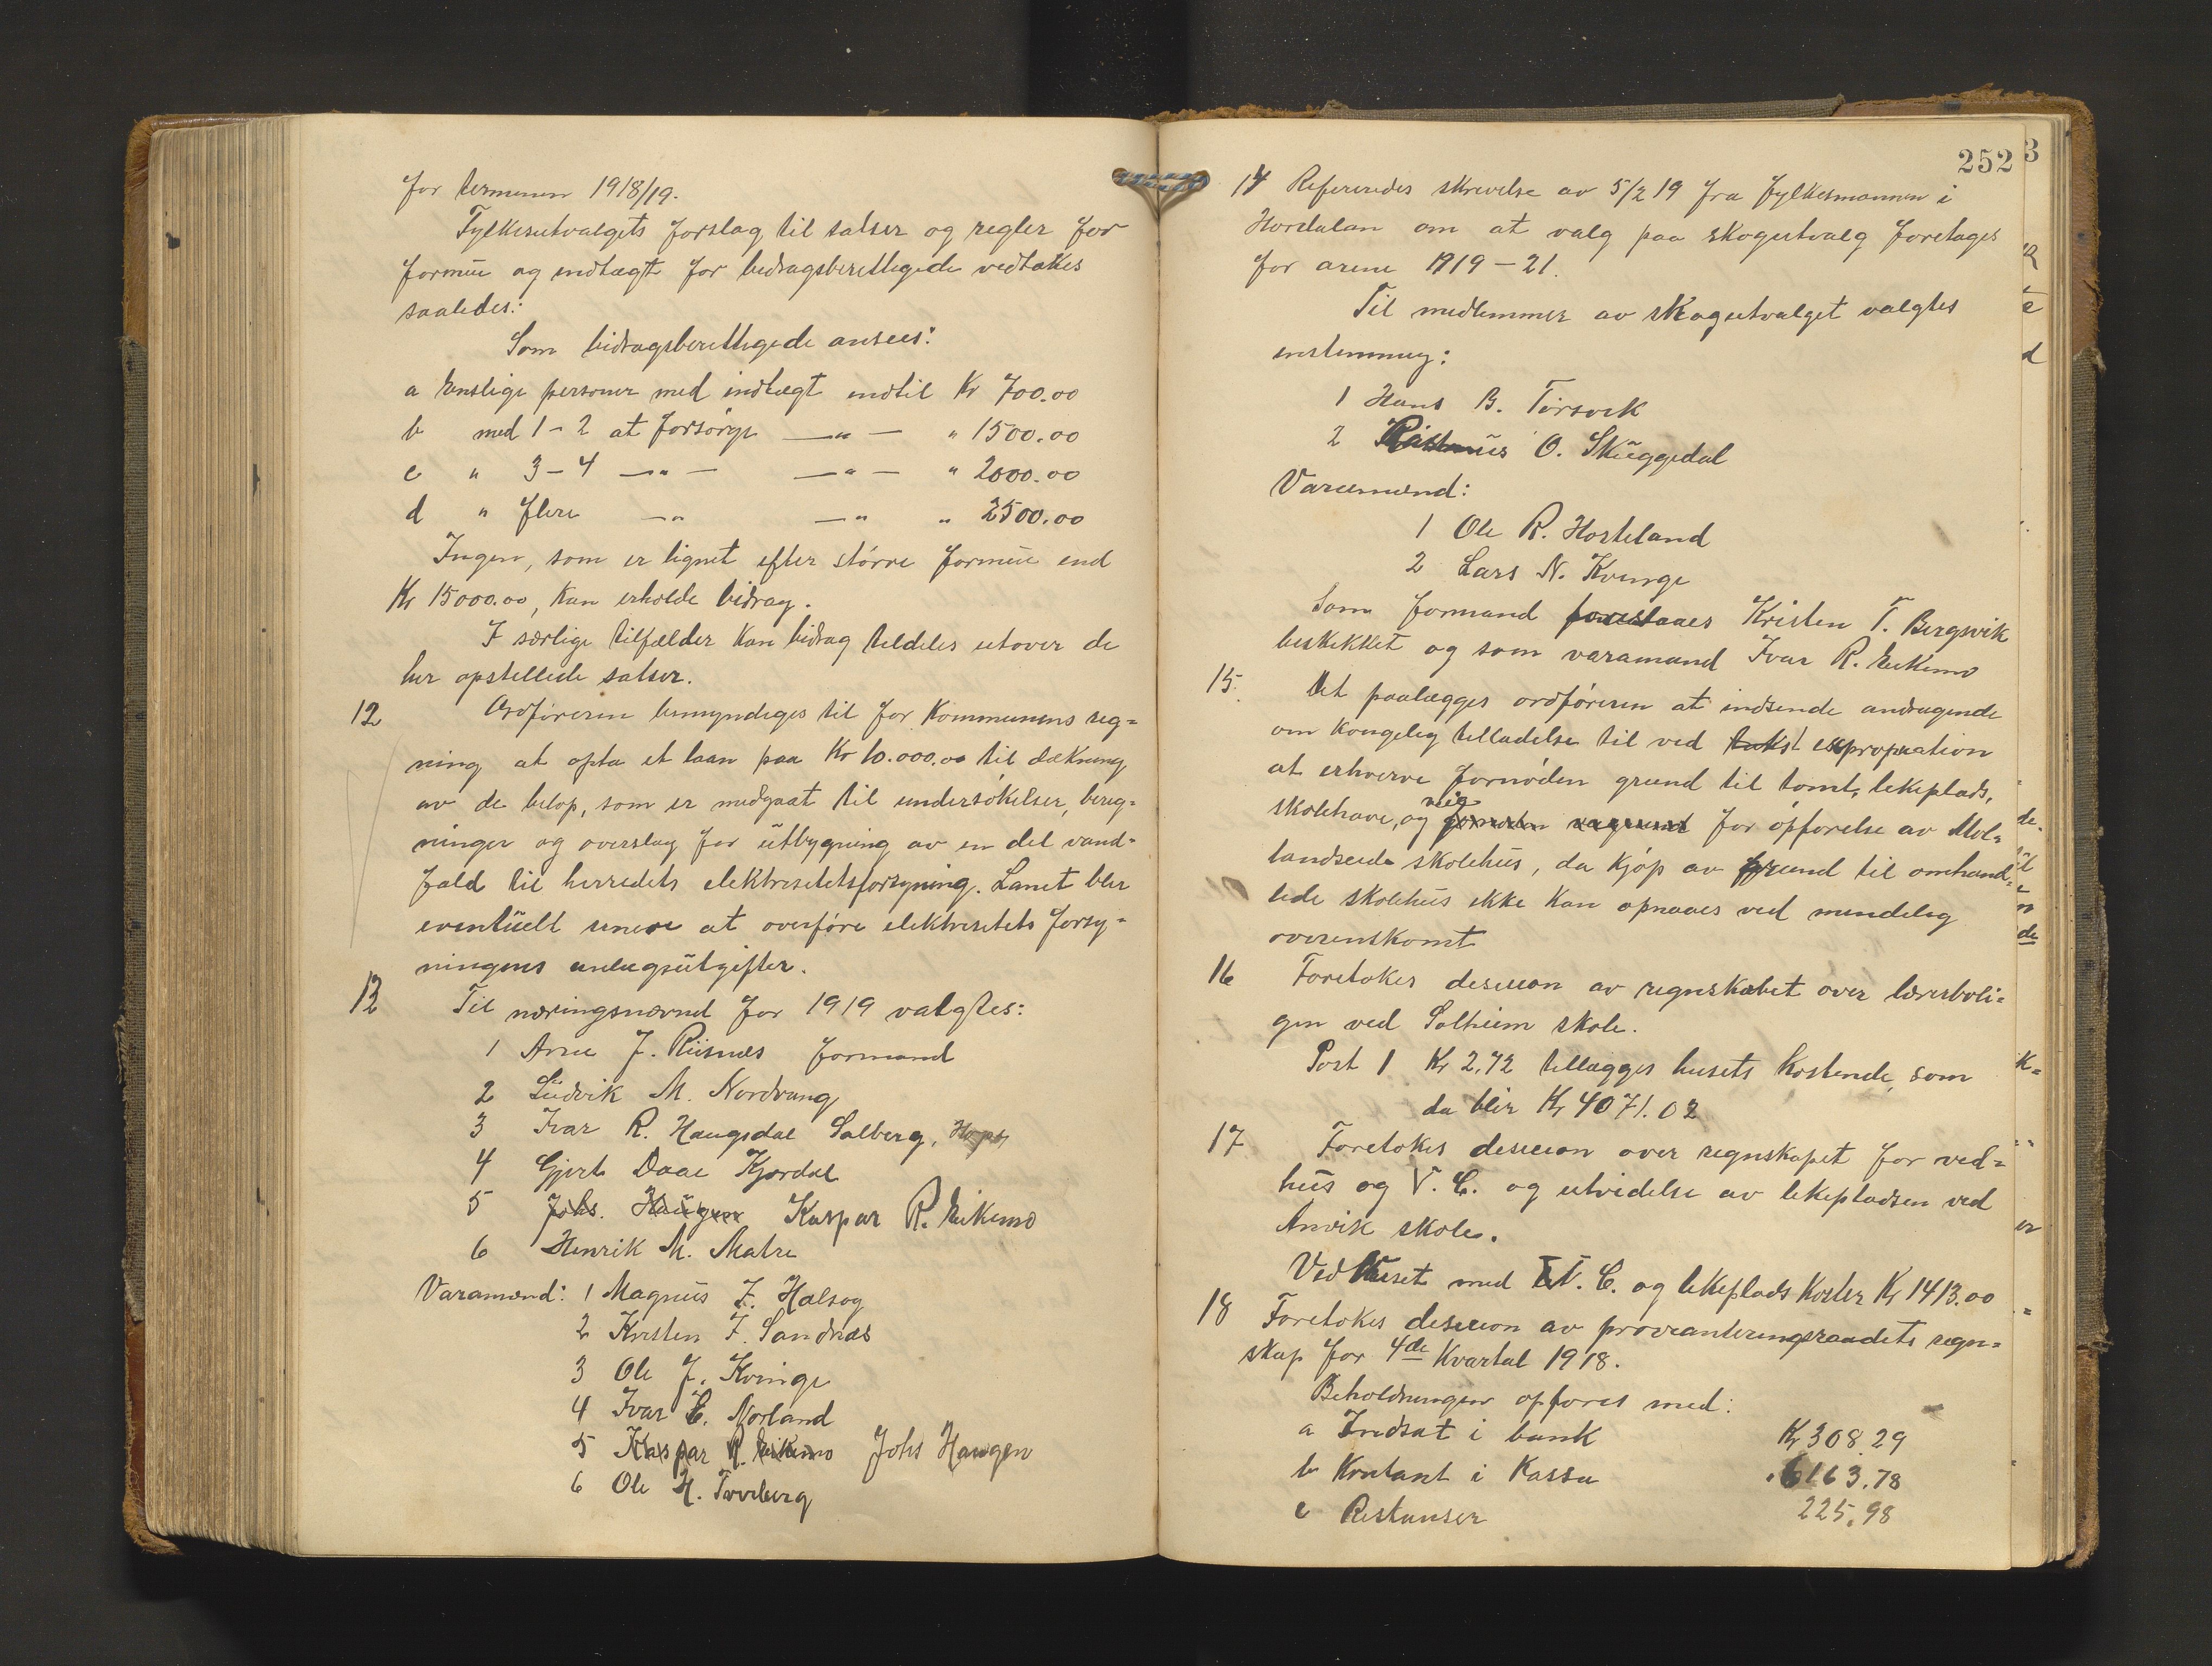 for terminen 1918/19.
Fylkesutvalgets forslag til satser og regler for
formue og indtægt for bidragsberettigede vedtakes
saaledes:
Som bidragsberettigede ansees:
a Enslige personer med indtægt indtil Kr 700.00
b med 1-2 at forsørge —"— " 1500.00
c " 3-4 —"— —"— " 2000.00
d " flere —" —" " 2500.00
Ingen, som er lignet efter større formue end
Kr 15000.00, kan erholde bidrag.
I særlige tilfælder kan bidrag tildeles utover de
her opstillede satser.
12 Ordføreren bemyndiges til for kommunens reg=
ning at opta et laan paa Kr 10.000.00 til dækning
av de beløp, som er medgaat til undersøkelser, bereg=
ninger og overslag for utbygning av en del vand=
fald til herredets elektrisitetsforsyning. Lanet blir
eventuelt senere at overføre elektrisitets forsy=
ningens anlægsutgifter.
13 Til næringsnævnd for 1919 valgtes:
1 Arne J. Riisnes formand
2 Ludvik M. Nordvang
3 Ivar R. Haugsdal Salberg,
4 Gjert Daae Kjordal
5 Johs. Haugen Kaspar R. Eikemo
6 Henrik M. Matre
Varamænd: 1 Magnus I. Halsøy
2 Kristen I. Sandnæs
3 Ole J. Kvinge
4 Ivar E. Norland
5 Kaspar R. Eikemo Johs Haugen
6 Ole H. Torvberg
252
3
14 Refereredes skrivelse av 5/2 19 fra fylkesmannen i
Hordalan om at valg paa skogutvalg foretages
for arene 1919-21.
Til medlemmer av skogutvalget valgtes
enstemmig:
1 Hans B. Torsvik
2 Rasmus O. Skuggedal
Varamænd:
1 Ole R. Hosteland
2 Lars N. Kvinge
Som formand foreslaaes Kristen T. Bergsvik
beskikket og som varamand Ivar R. Eikemo
15. Det paalægges ordføreren at indsende andragende
om kongelig tilladelse til ved takst expropriation
at erhverve fornøden grund til tomt, lekeplads,
skolehave, og veig fornøden vegrund for opførelse av Mol=
landseide skolehus, da kjøp av grund til omhand=
lede skolehus ikke kan opnaaes ved mindelig
overenskomst
16 Foretokes desision av regnskabet over lærerboli=
gen ved Solheim skole.
Post 1 Kr 2.72 tillægges husets kostende, som
da blir Kr 4071.02
17 Foretokes desision over regnskapet for ved=
hus og V. C. og utvidelse av lekepladsen ved
Anvik skole.
Vedhuset med V. C. og lekeplads koster Kr 1413.00
18 Foretokes desision av provianteringsraadets regn=
skap for 4de kvartal 1918.
Beholdningen opføres med:
a Indsat i bank Kr 308.29
b Kontant i kassa " 6163.78
c Restanser 225.98